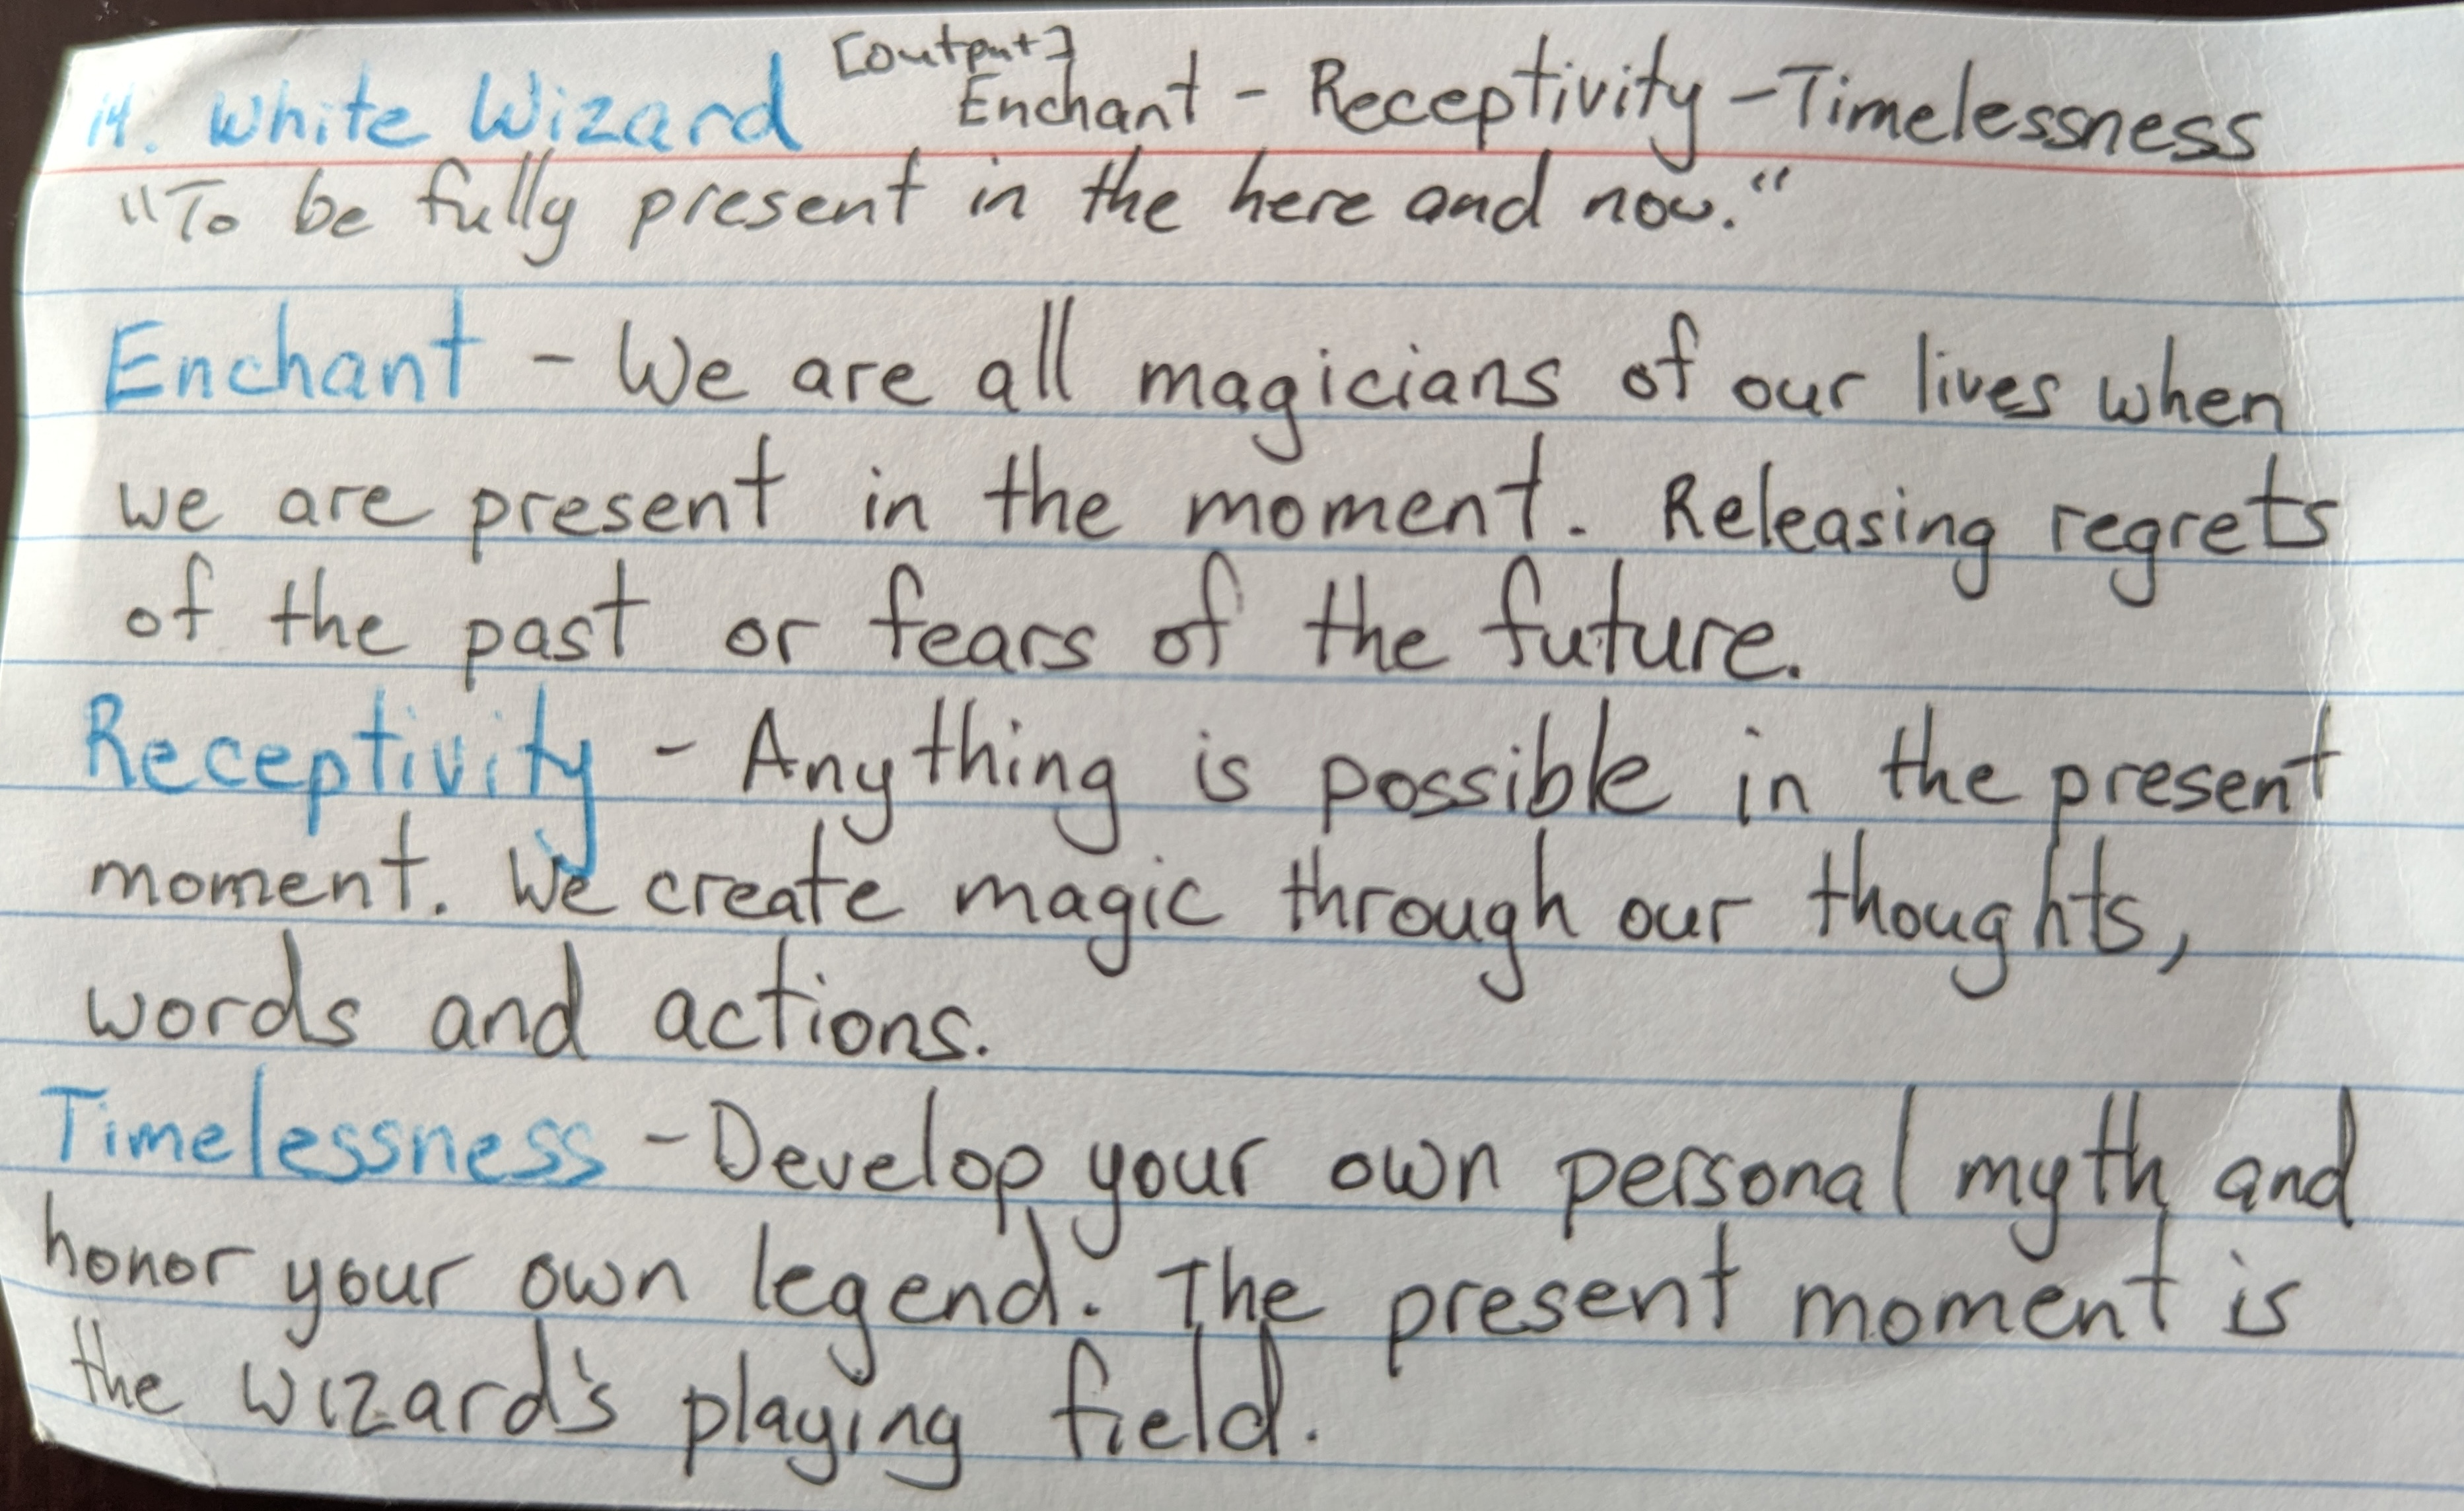 14. White Wizard [output] Enchant - Receptivity - Timelessness
"To be fully present in the here and now."
Enchant - We are all magicians of our lives when
we are present in the moment. Releasing regrets
of the past or fears of the future.
Receptivity - Anything is possible in the present
moment. We create magic through our thoughts,
words and actions.
Timelessness - Develop your own personal myth and
honor your own legend. The present moment is
the wizard's playing field.